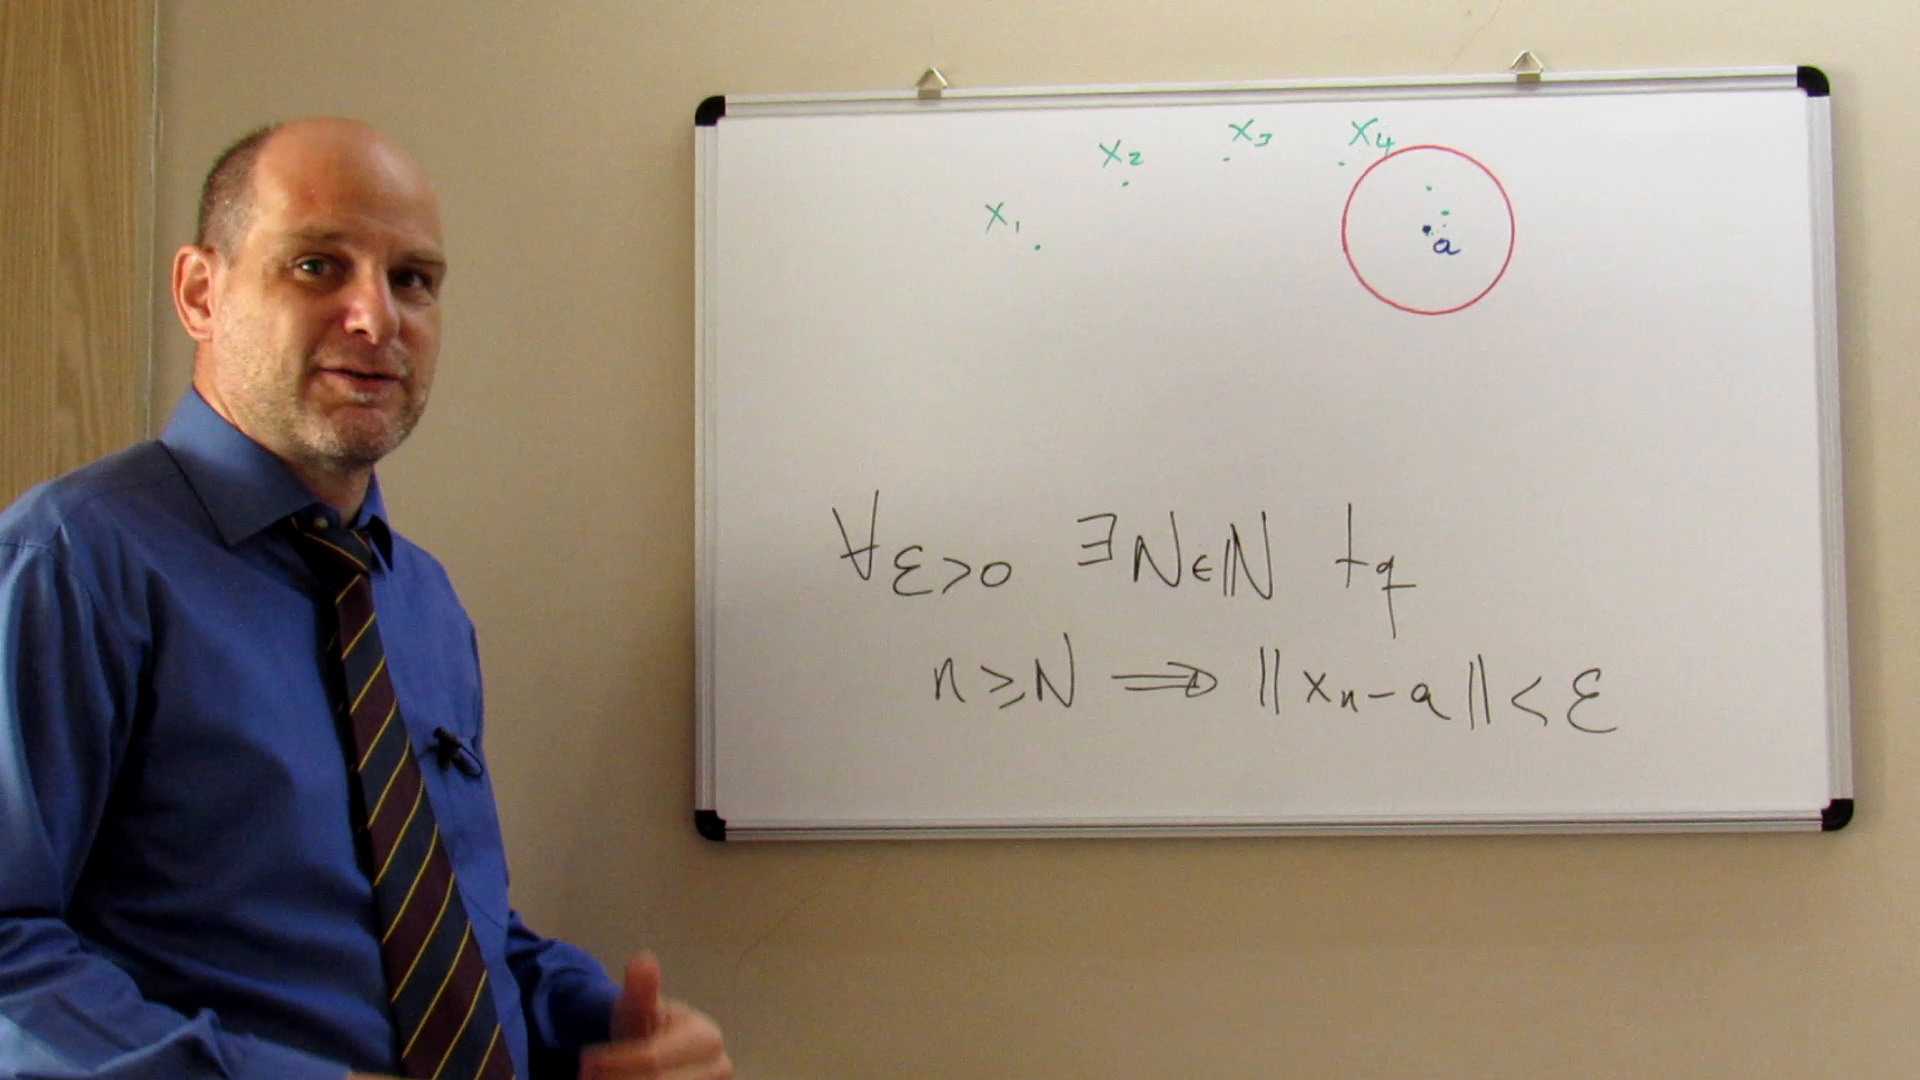 x₁
x₂
x₃
x₄
a
∀ε>0 ∃N∈ℕ tq
n≥N ⟹ ‖xₙ-a‖<ε